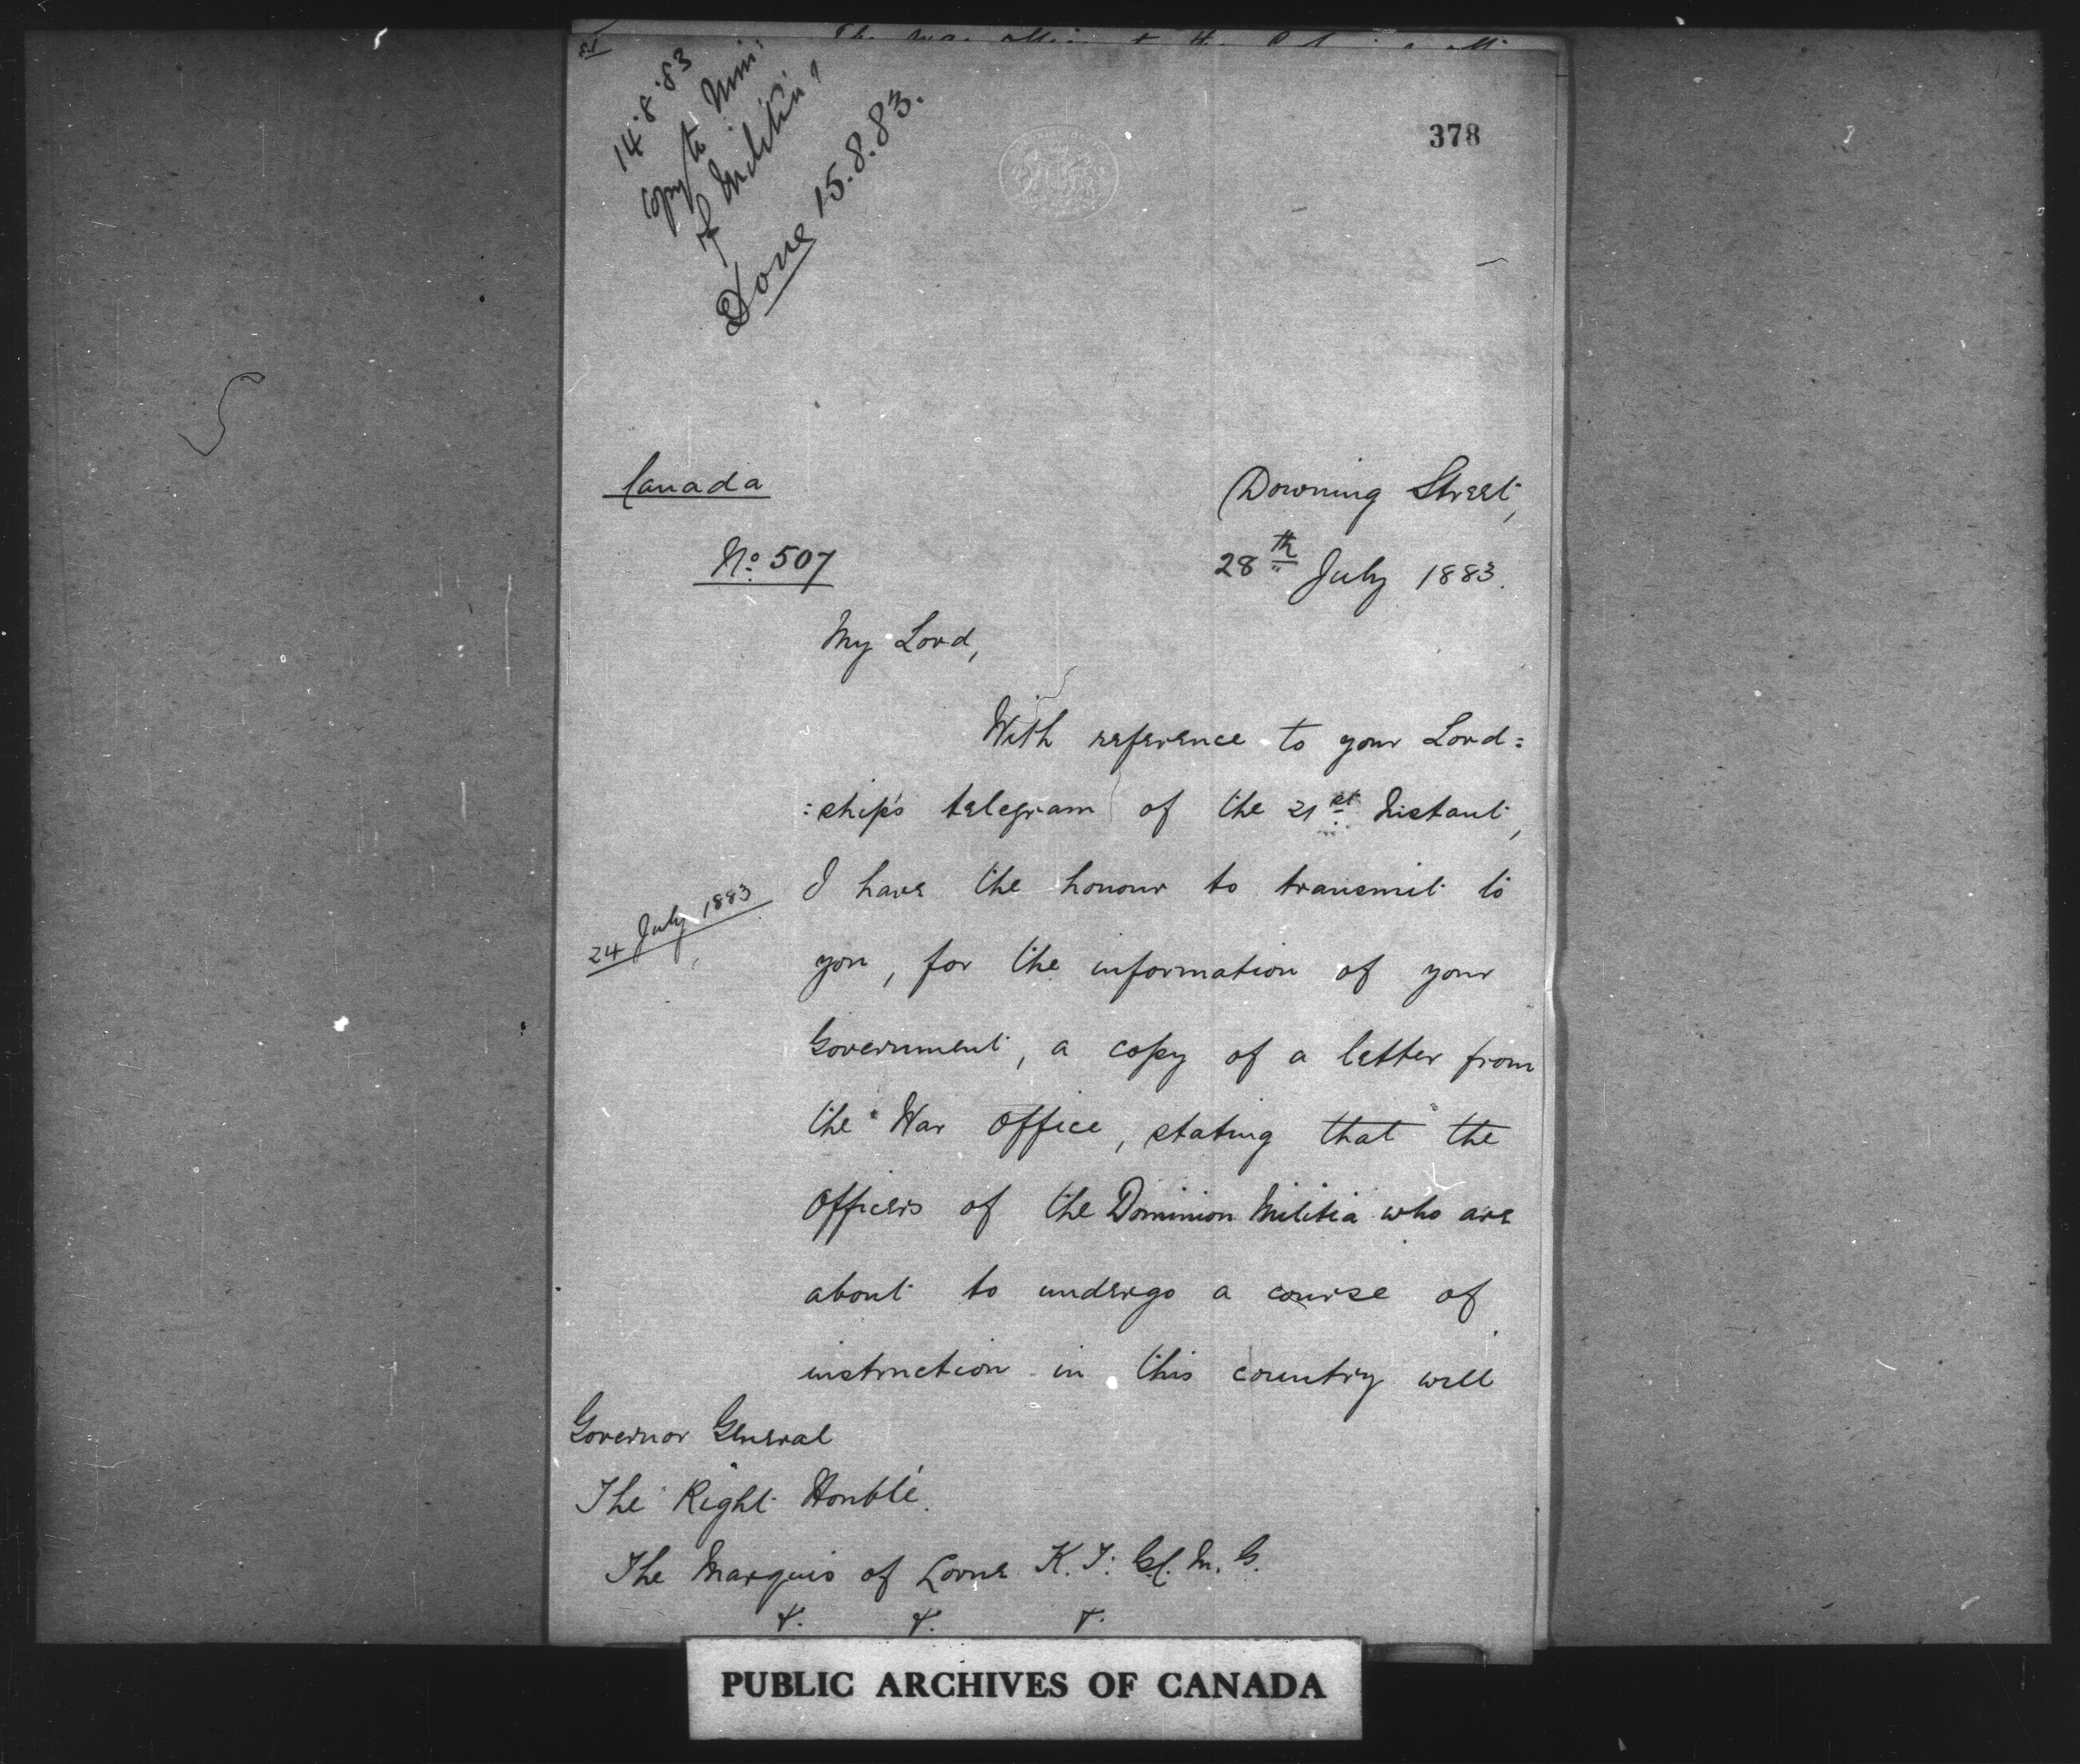 14.8.83
copy to Min:
of Militia
Done 15.8.83.
378
Canada
Downing Street,
No. 507
28th July 1883.
My Lord,
With reference to your Lord=
=ship's telegram of the 21st Instant,
I have the honour to transmit to
24 July 1883
you, for the information of your
Government, a copy of a letter from
the War Office, stating that the
Officers of the Dominion Militia who are
about to undergo a course of
instruction in this country will
Governor General
The Right Honble.
The Marquis of Lorne K.T. G.C.M.G.
&. &. &.
PUBLIC ARCHIVES OF CANADA